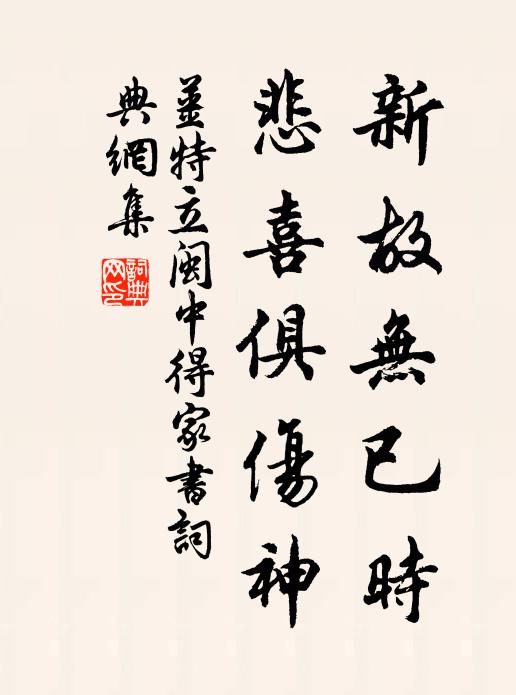 新故無已時
悲喜俱傷神
姜特立閩中得家書詞
典網集
詞典
网印